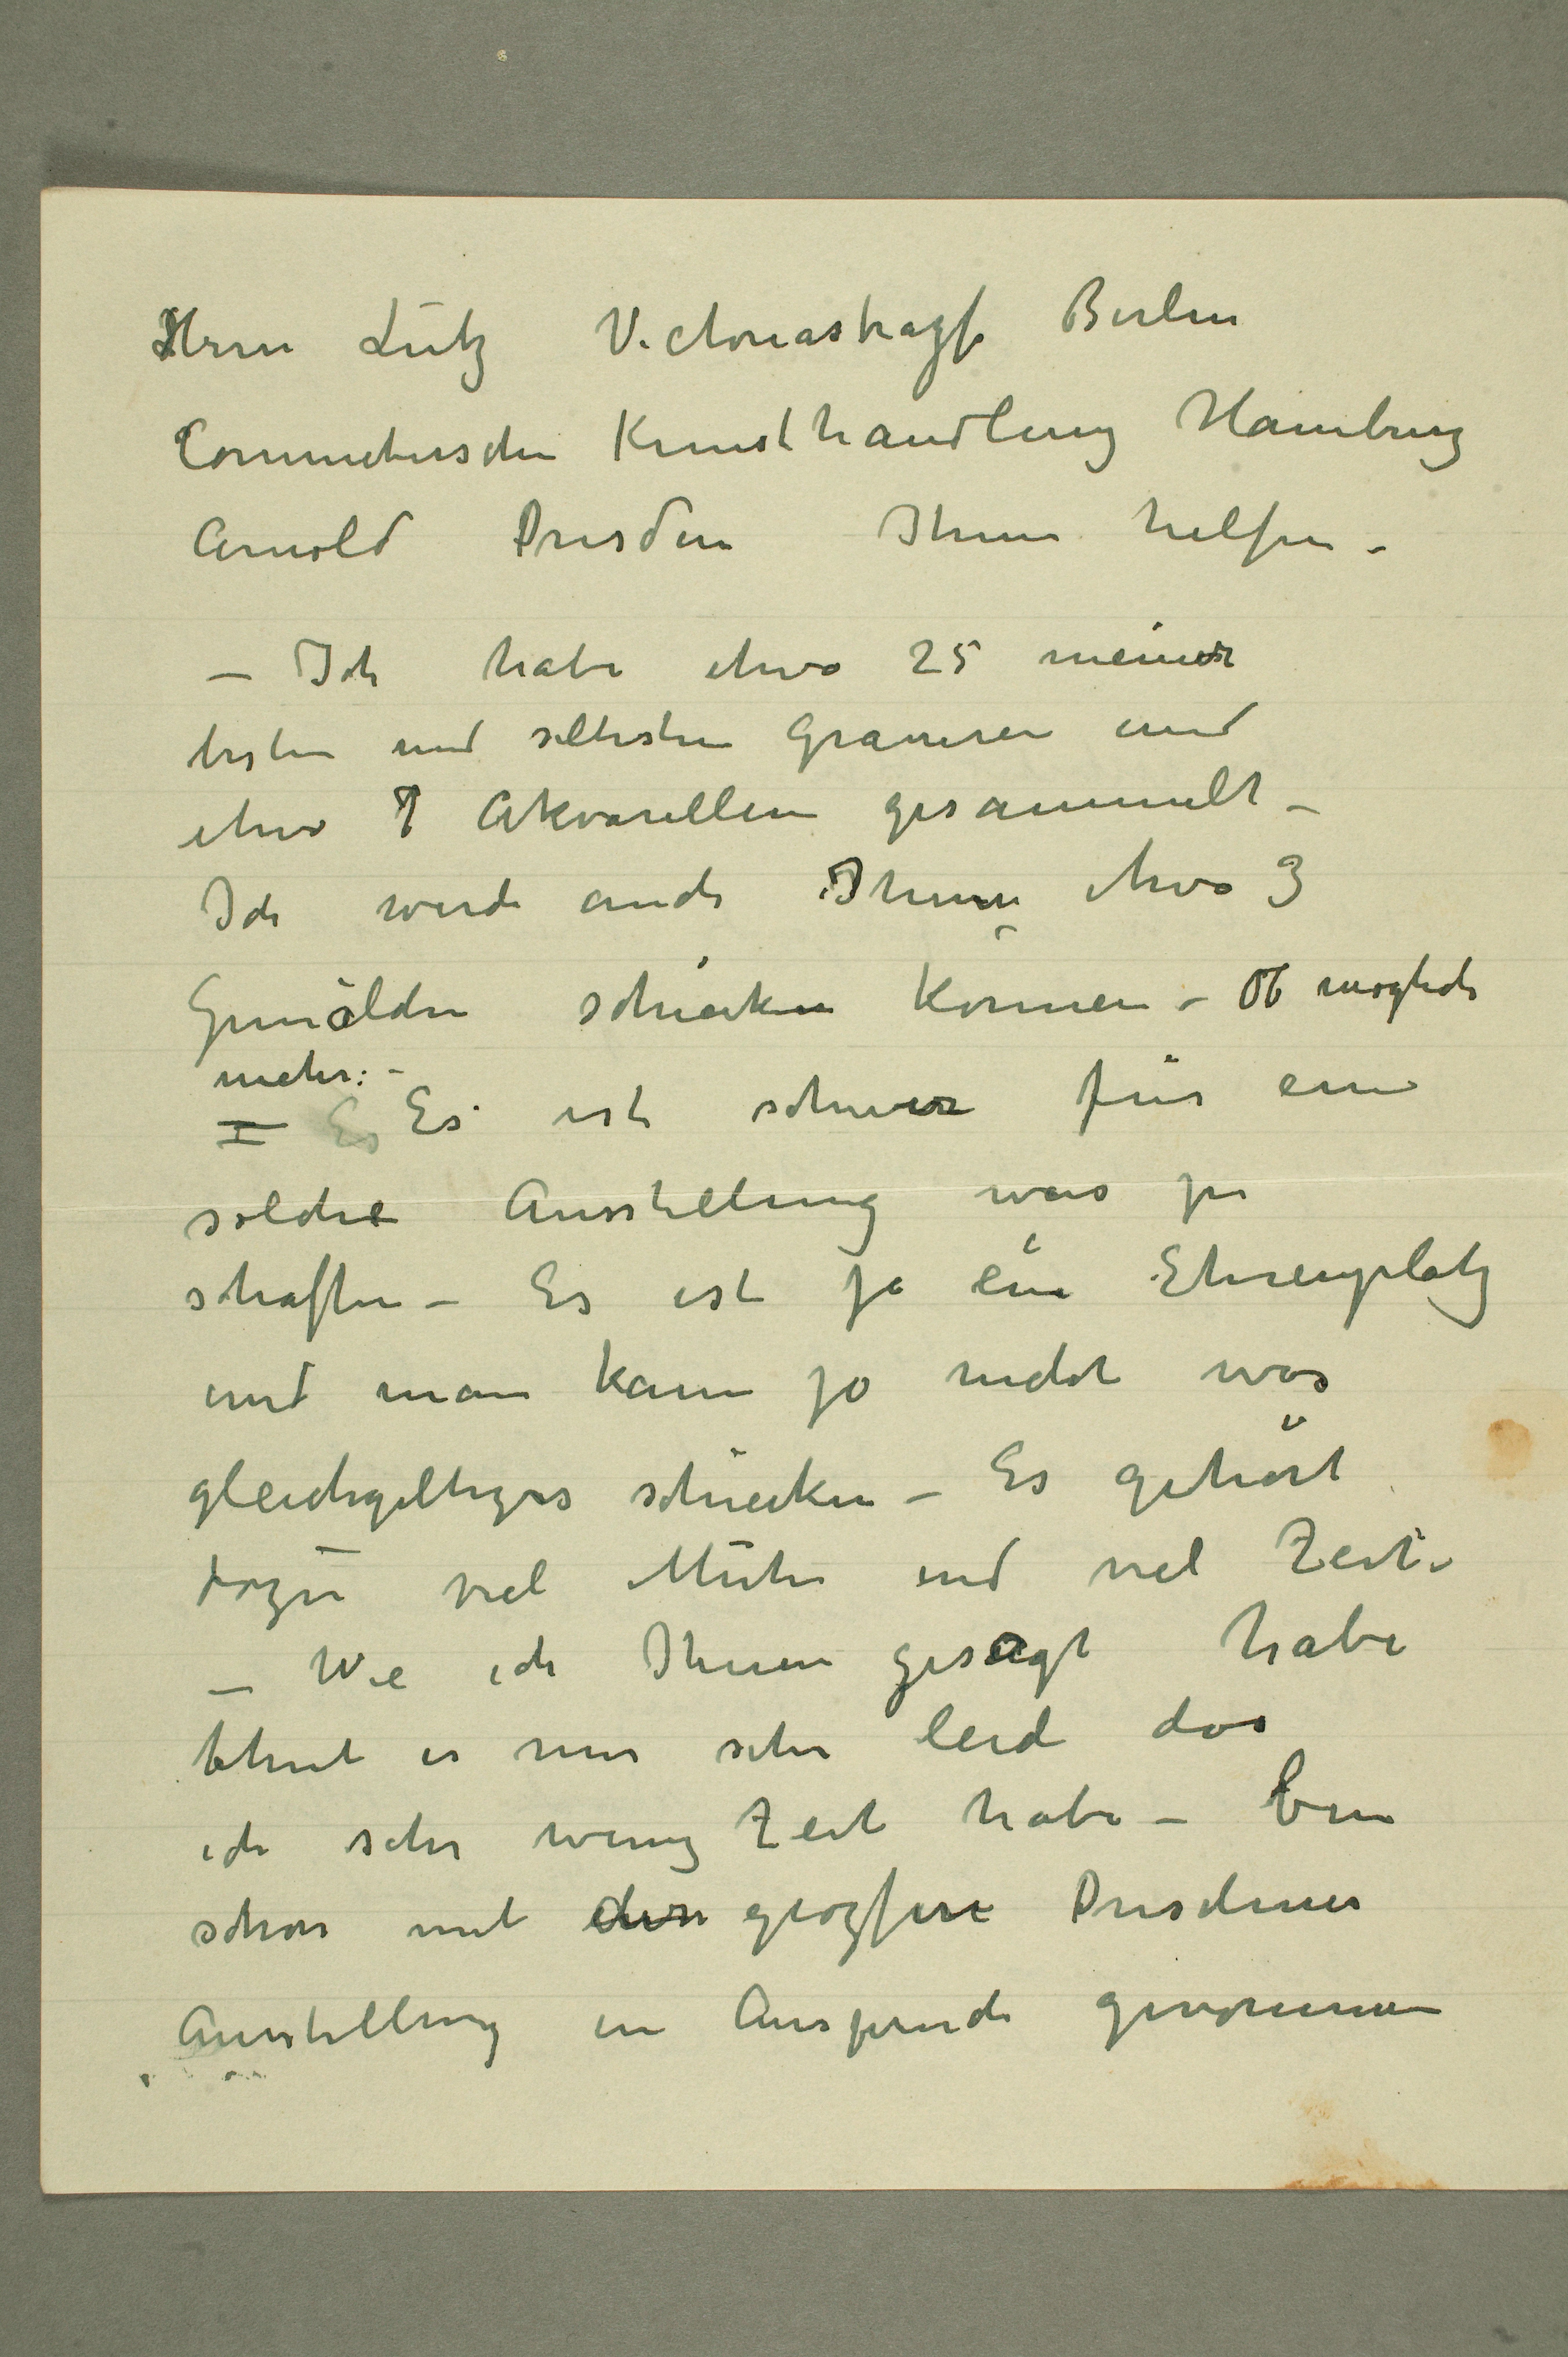 Herrn Lutz Victoriastrazse Berlin
Commetersche Kunsthandlung Hamburg
Arnold Dresden Ihnen helfen –
– Ich habe etwa 25 meiner
besten und seltesten Gravuren und
etwa 7 Akvarellen gesammelt –
Ich werde auch Ihnen etwa 3
Gemälden schicken können – Ob möglich
mehr: –
– Es Es ist schwer für eine
solche Ausstellung was zu
schaffen – Es ist ja ein Ehrenplatz
und man kann ja nicht was
gleichgeltiges schicken – Es gehört
dazu viel Mühe und viel Zeit –
– Wie ich Ihnen gesagt habe
thut es mir sehr leid das
ich sehr wenig Zeit habe – Bin
schon mit der grozsen Dresdener
Ausstellung in Anspruch genommen